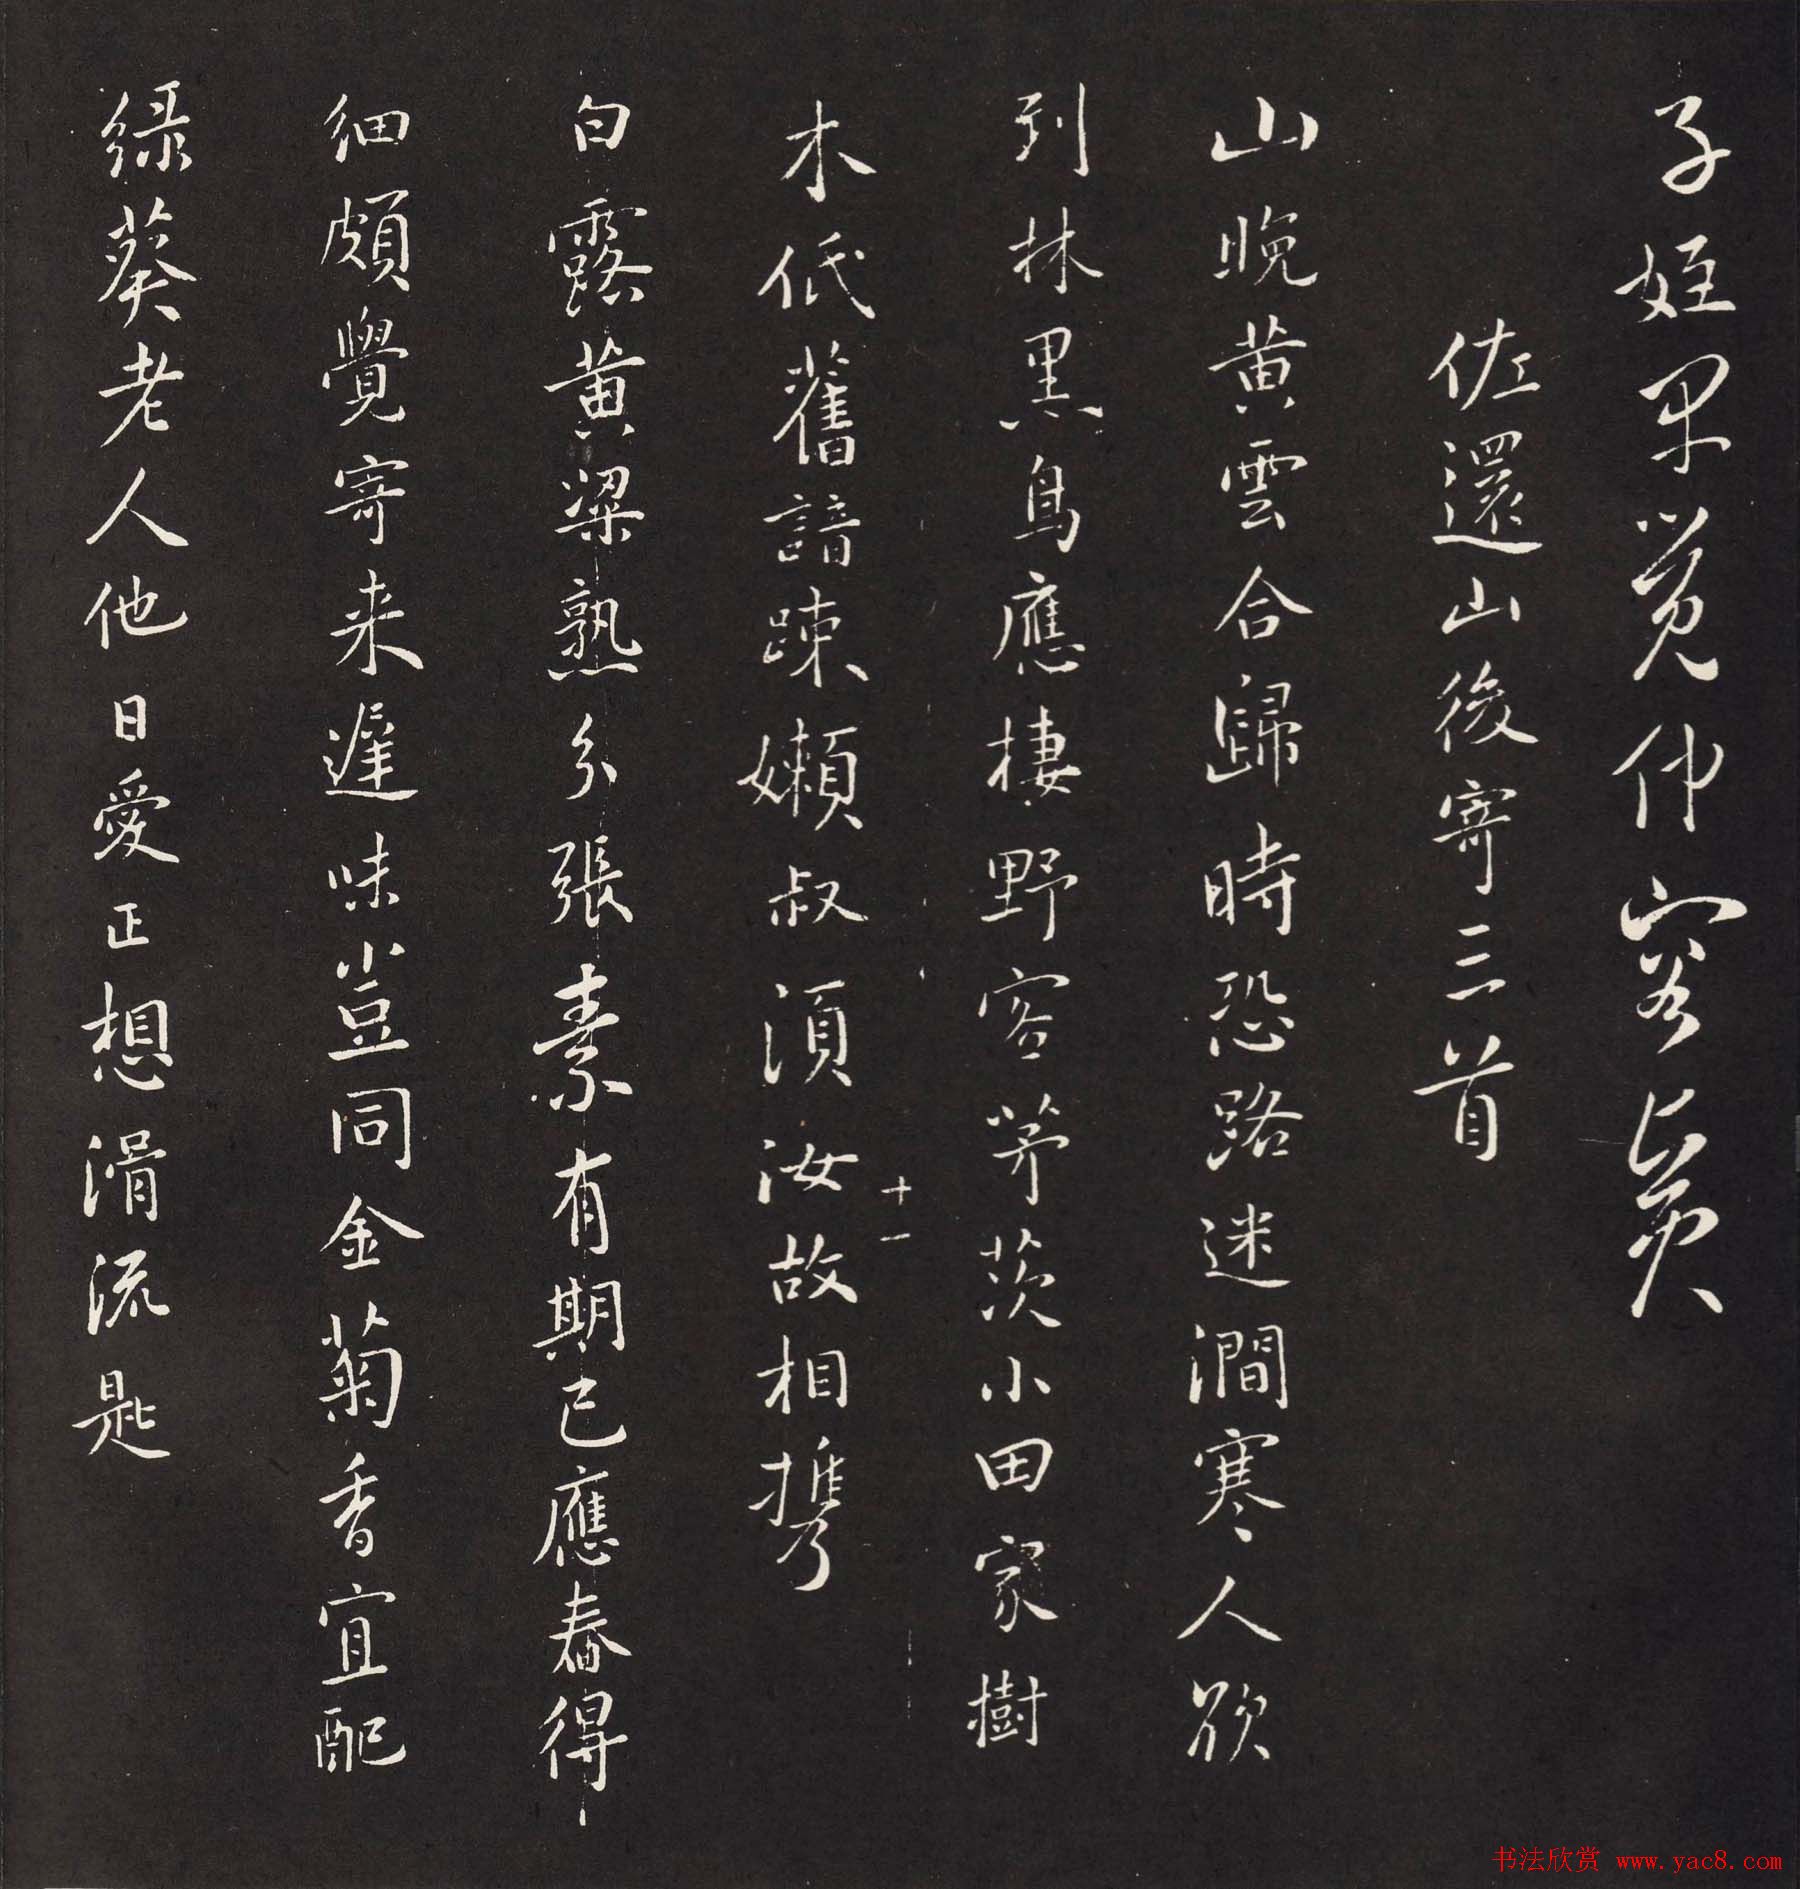 子姪早覺仲容賢
佐還山後寄三首
山晚黃雲合歸時恐路迷澗寒人欲
到林黑鳥應棲野客茅茨小田家樹
十一
木低舊諳疎嬾叔須汝故相携
白露黃粱熟分張素有期已應舂得
細頗覺寄来遲味豈同金菊香宜配
綠葵老人他日愛正想滑流匙
书法欣赏 www.yac8.com